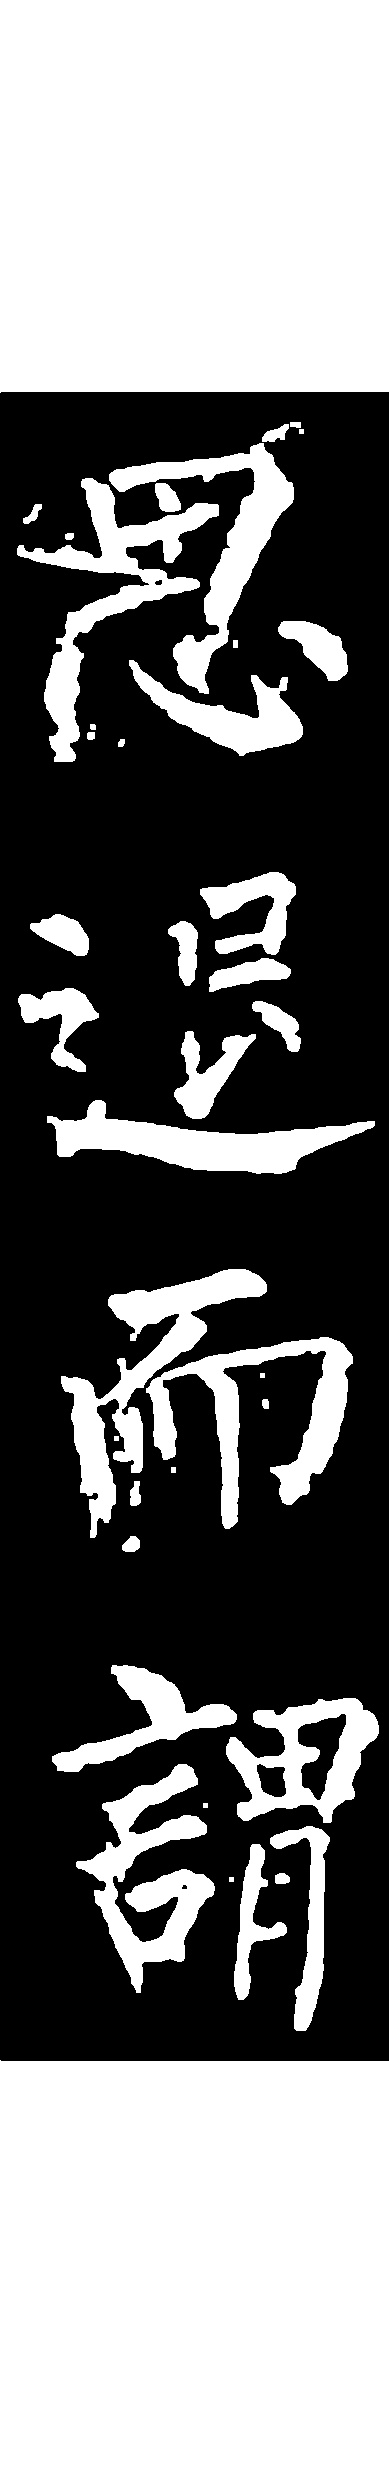 思退而謂